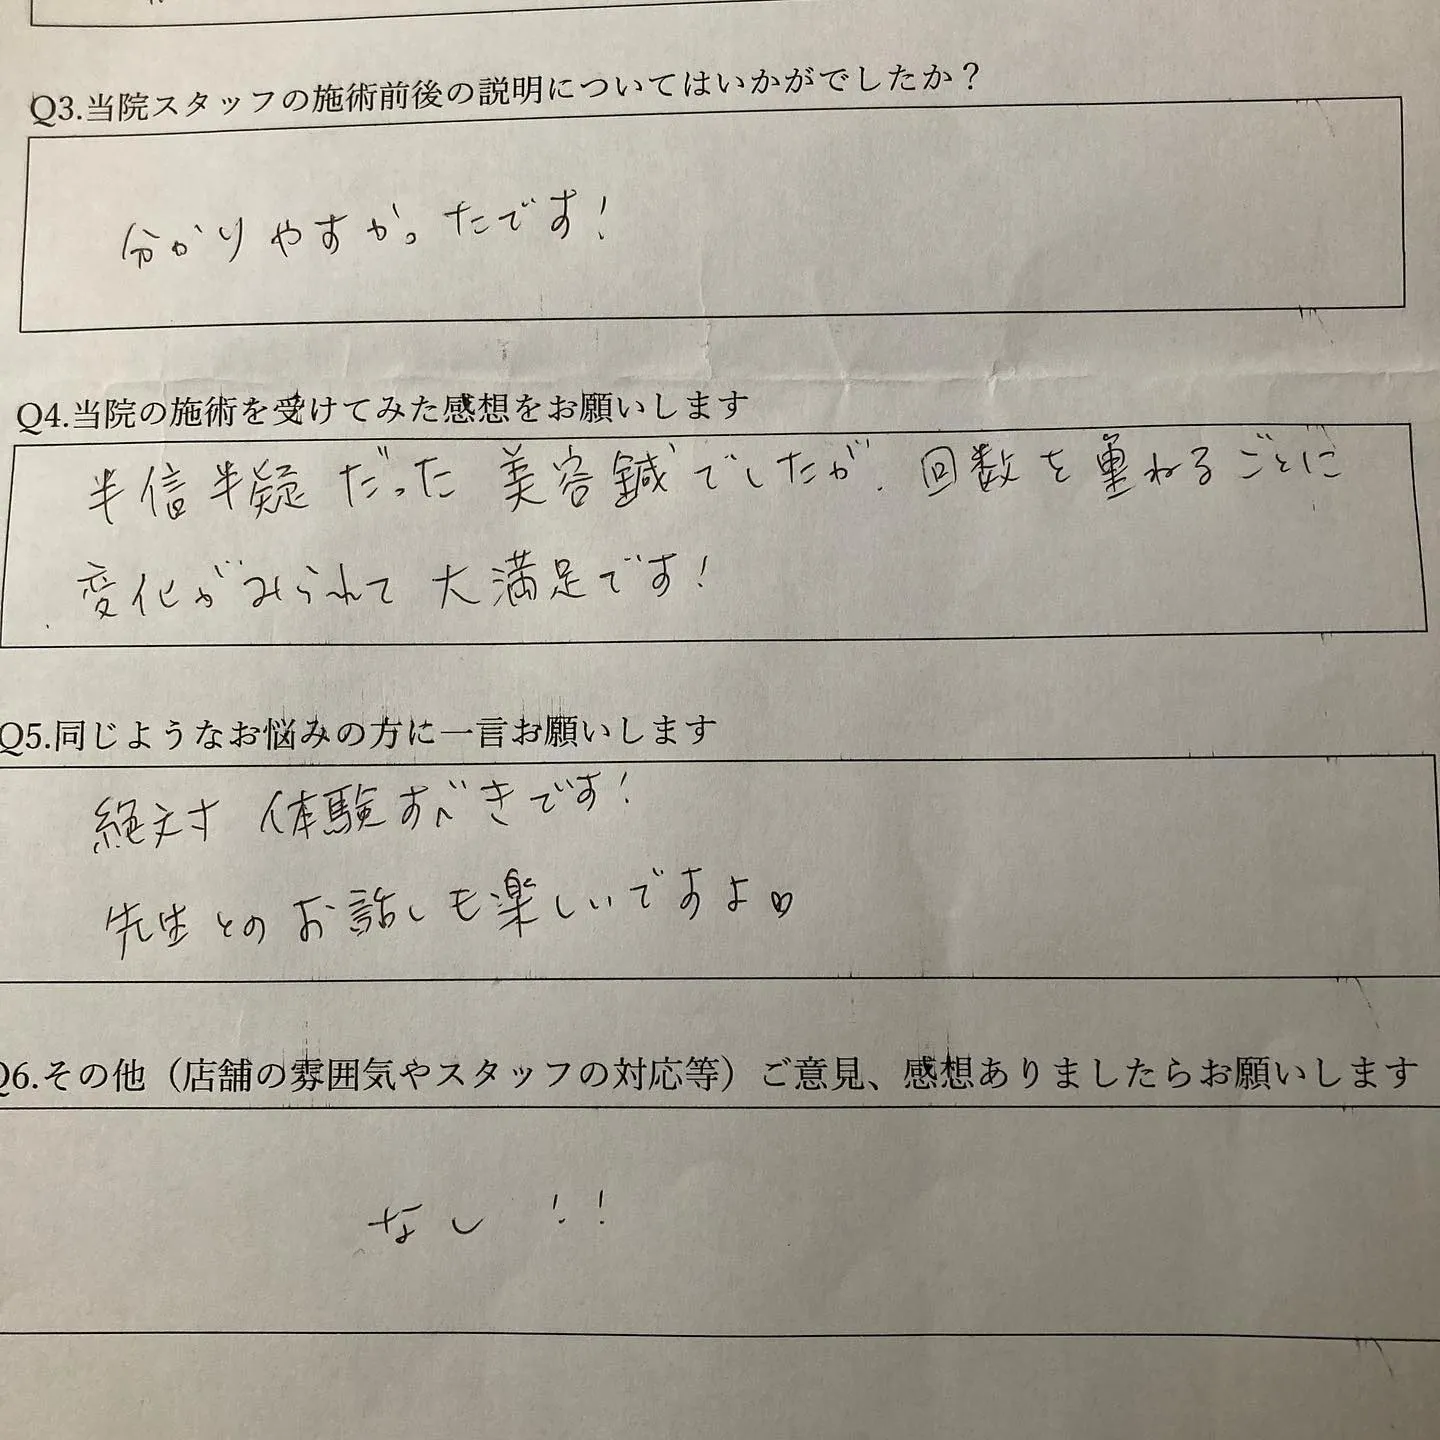 Q3.当院スタッフの施術前後の説明についてはいかがでしたか？
分かりやすかったです!
Q4.当院の施術を受けてみた感想をお願いします
半信半疑だった美容鍼でしたが、回数を重ねるごとに
変化がみられて大満足です!
Q5.同じようなお悩みの方に一言お願いします
絶対体験すべきです!
先生とのお話しも楽しいですよ♡
Q6.その他（店舗の雰囲気やスタッフの対応等）ご意見、感想ありましたらお願いします
なし!!